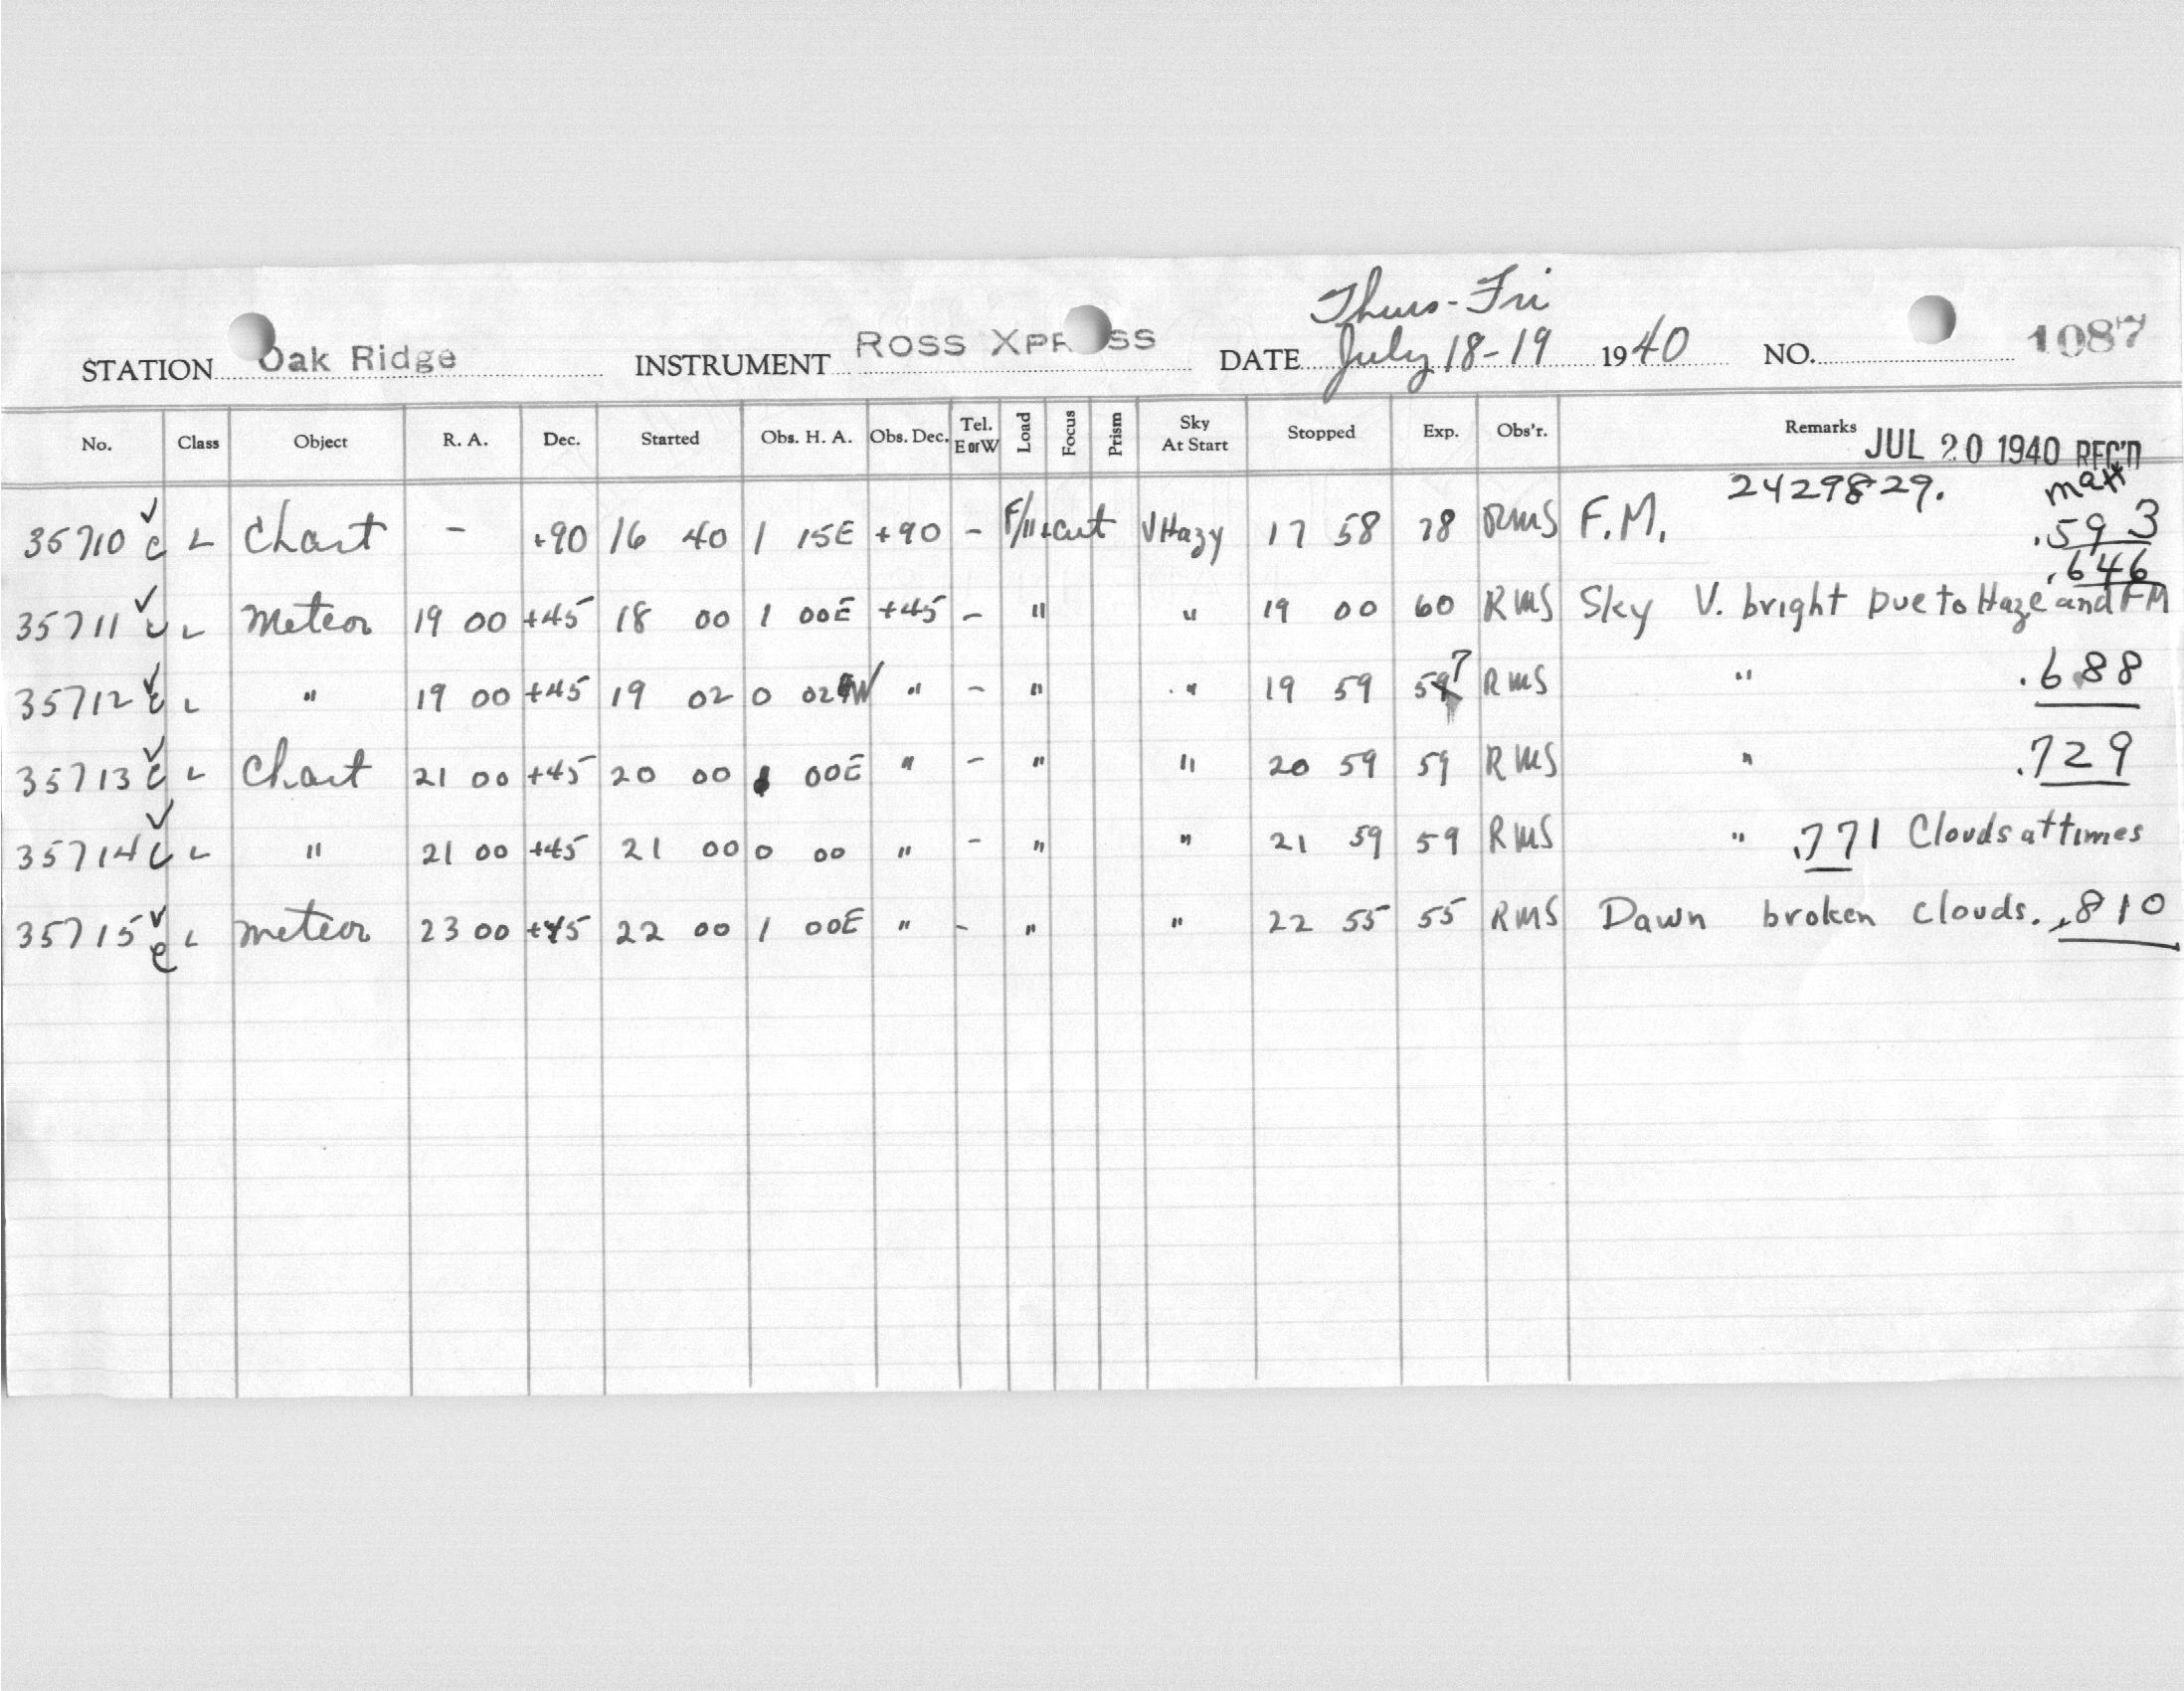 Thurs-Fri
STATION Oak Ridge INSTRUMENT ROSS XPRESS DATE July 18-19 1940 NO. 1087
No. Class Object R. A. Dec. Started Obs. H. A. Obs. Dec. Tel. E or W Load Focus Prism Sky At Start Stopped Exp. Obs'r. Remarks JUL 20 1940 REC'D
2429829.
35710 c L Chart - +90 16 40 1 15E +90 - V Hazy 17 58 78 RMS F.M. .593
.646
35711 c L Meteor 19 00 +45 18 00 1 00E +45 - " " 19 00 60 RMS Sky V. bright Due to Haze and FM
35712 c L " 19 00 +45 19 02 0 02W " - " " 19 59 57 RMS " .688
35713 c L Chart 21 00 +45 20 00 1 00E " - " " 20 59 59 RMS " .729
35714 c L " 21 00 +45 21 00 0 00 " - " " 21 59 59 RMS " .771 Clouds at times
35715 c L meteor 23 00 +45 22 00 1 00E " - " " 22 55 55 RMS Dawn broken clouds. .810